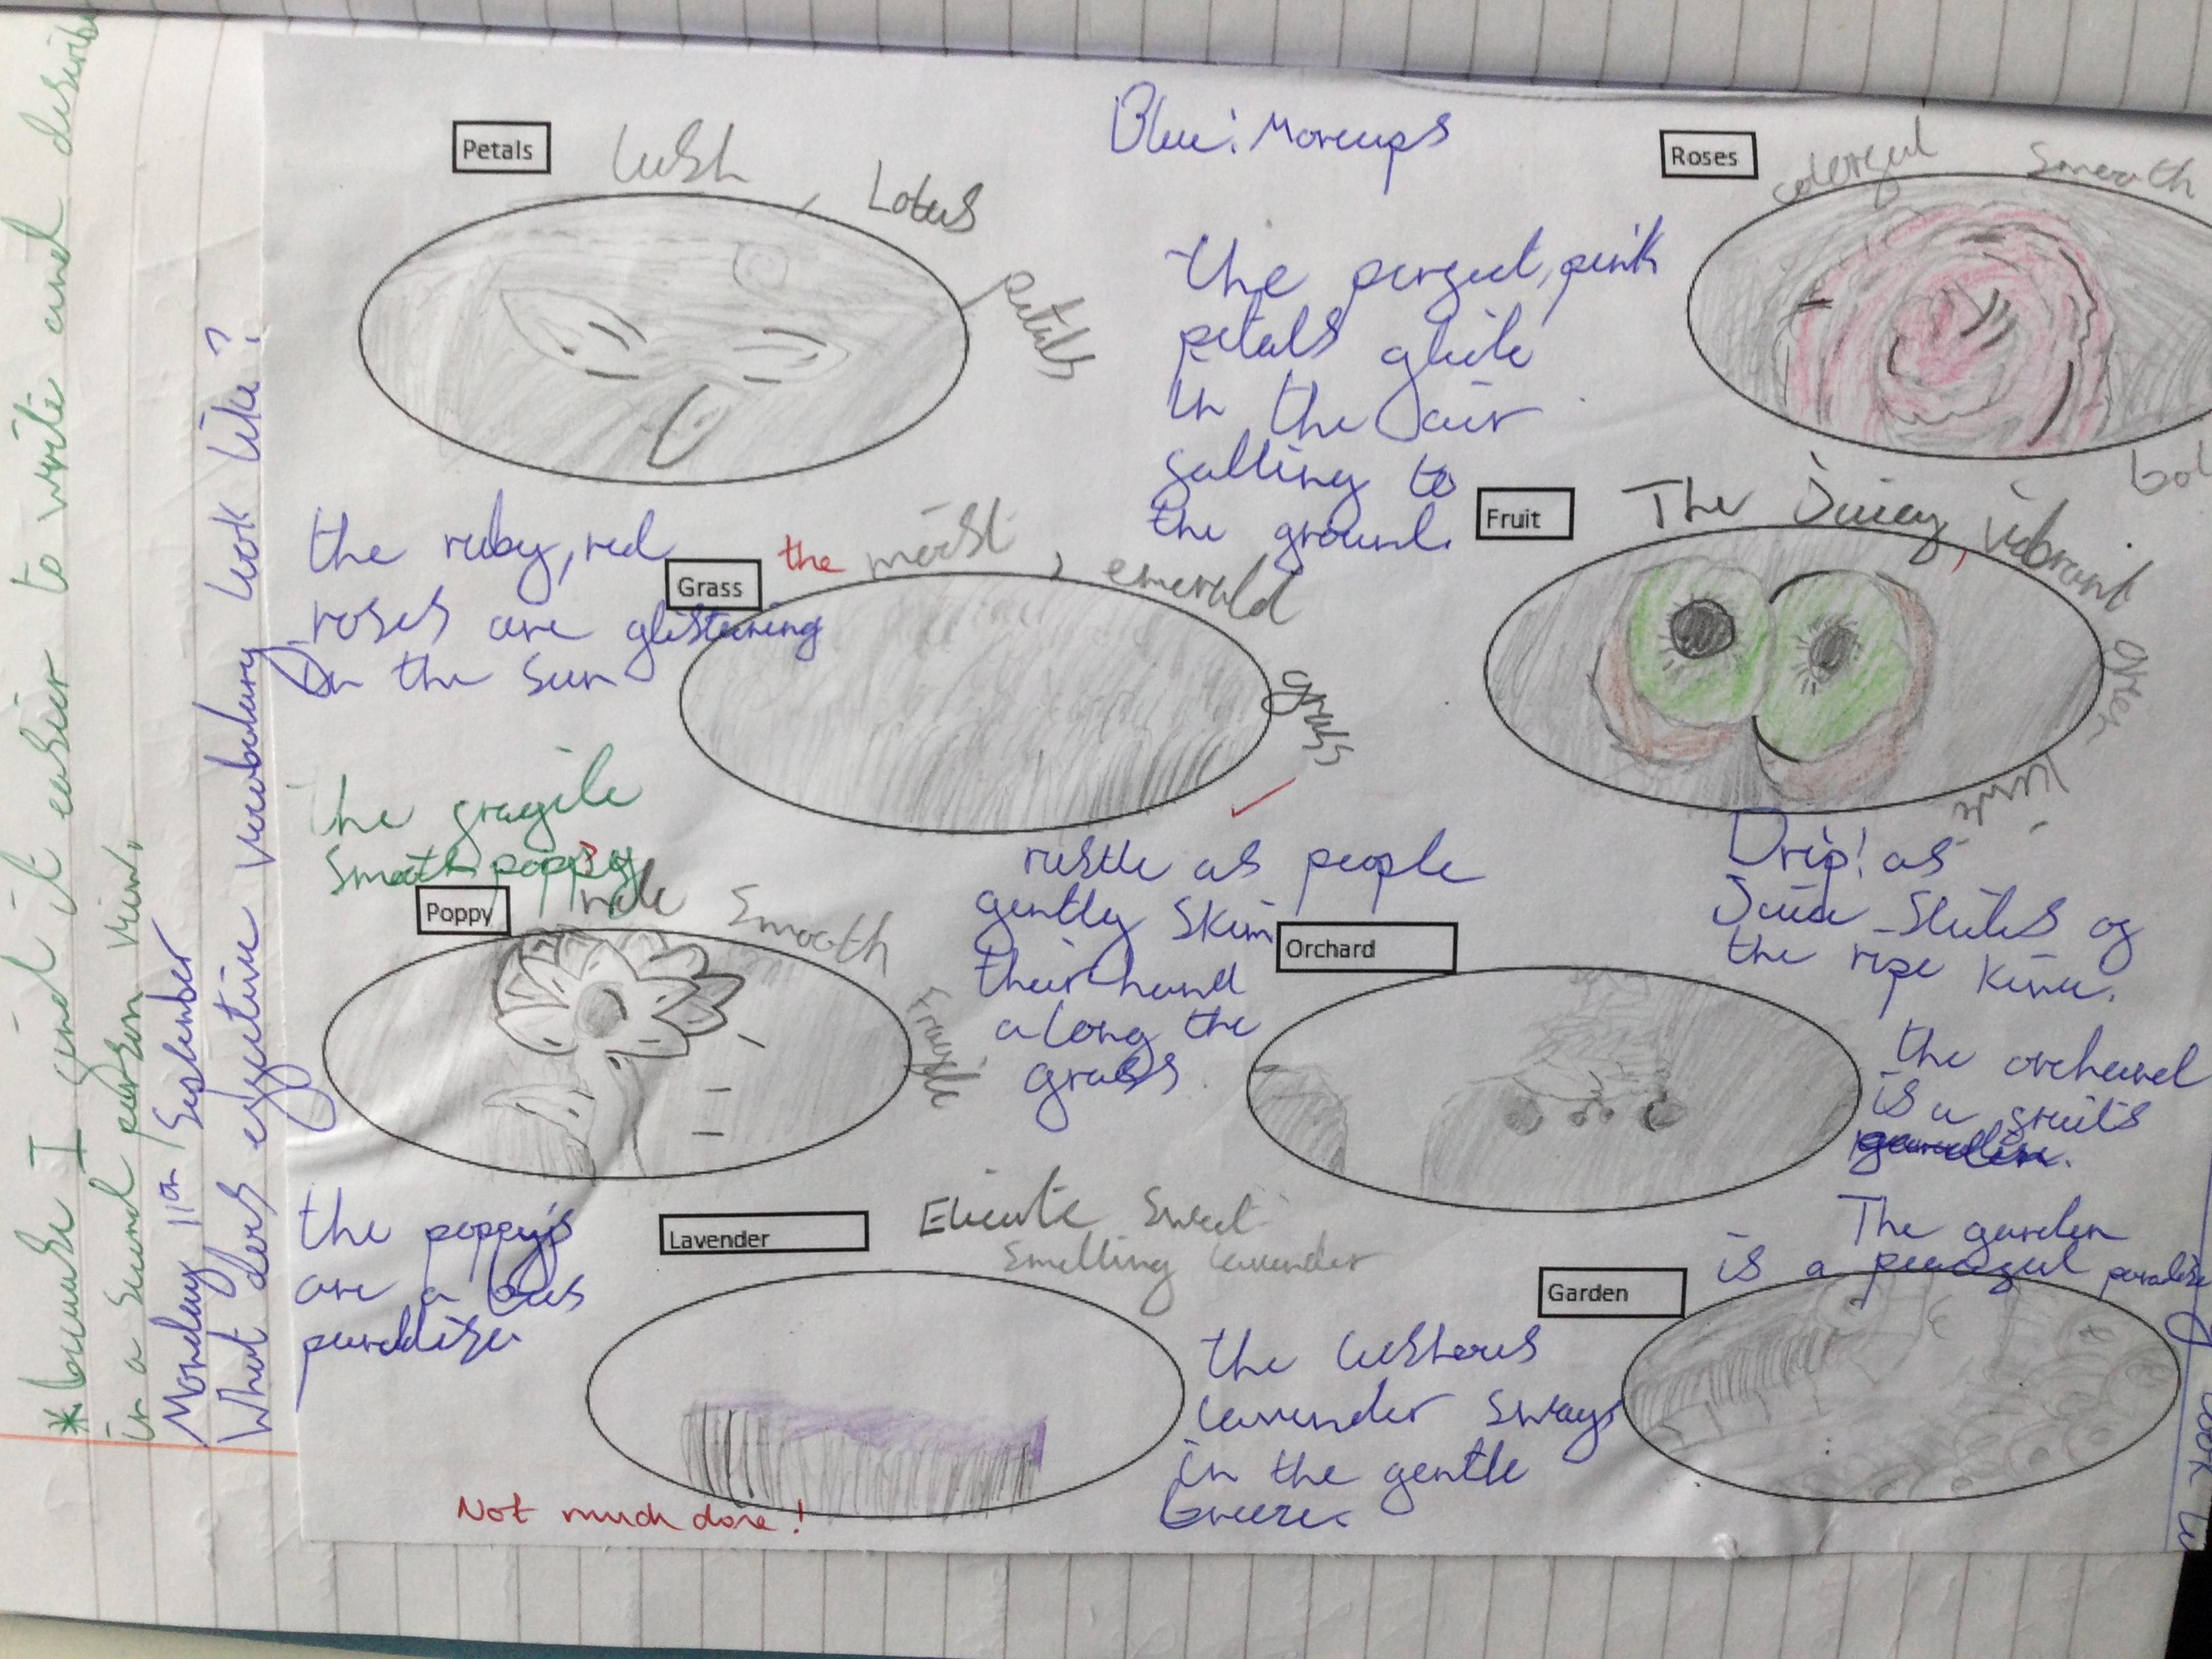 * because I find it easier to write and describe
in a second person view.
Monday 11th September
What does effective vocabulary look like?
Blue: Moreups
Petals
lush, Lotus petals
the perfect, pink
petals glide
in the air
falling to
the ground.
Roses
colorful smooth
the ruby, red
roses are glistening
in the sun
Grass
the moist, emerald grass
rustle as people
gently skim
their hand
along the
grass
Fruit
The juicy, vibrant
Drip! as
Juice
the ripe kiwi.
The fragile
smooth poppy
Poppy
Smooth Fragile
the poppy's
are a bees
paradise.
Orchard
the orchard
is a fruits
garden.
Lavender
Sweet
smelling lavender
the lusherus
lavender sways
in the gentle
breeze.
Garden
The garden
is a peaceful paradise
Not much done!
look